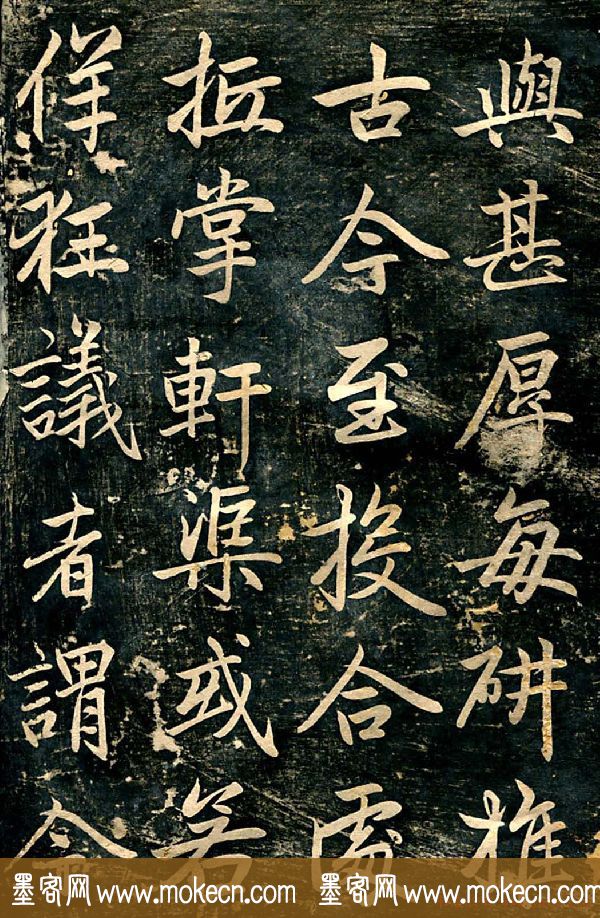 與甚厚每研推
古今至投合處
抵掌軒渠或若
佯狂議者謂今
墨客网 www.mokecn.com 墨客网 www.mokecn.com